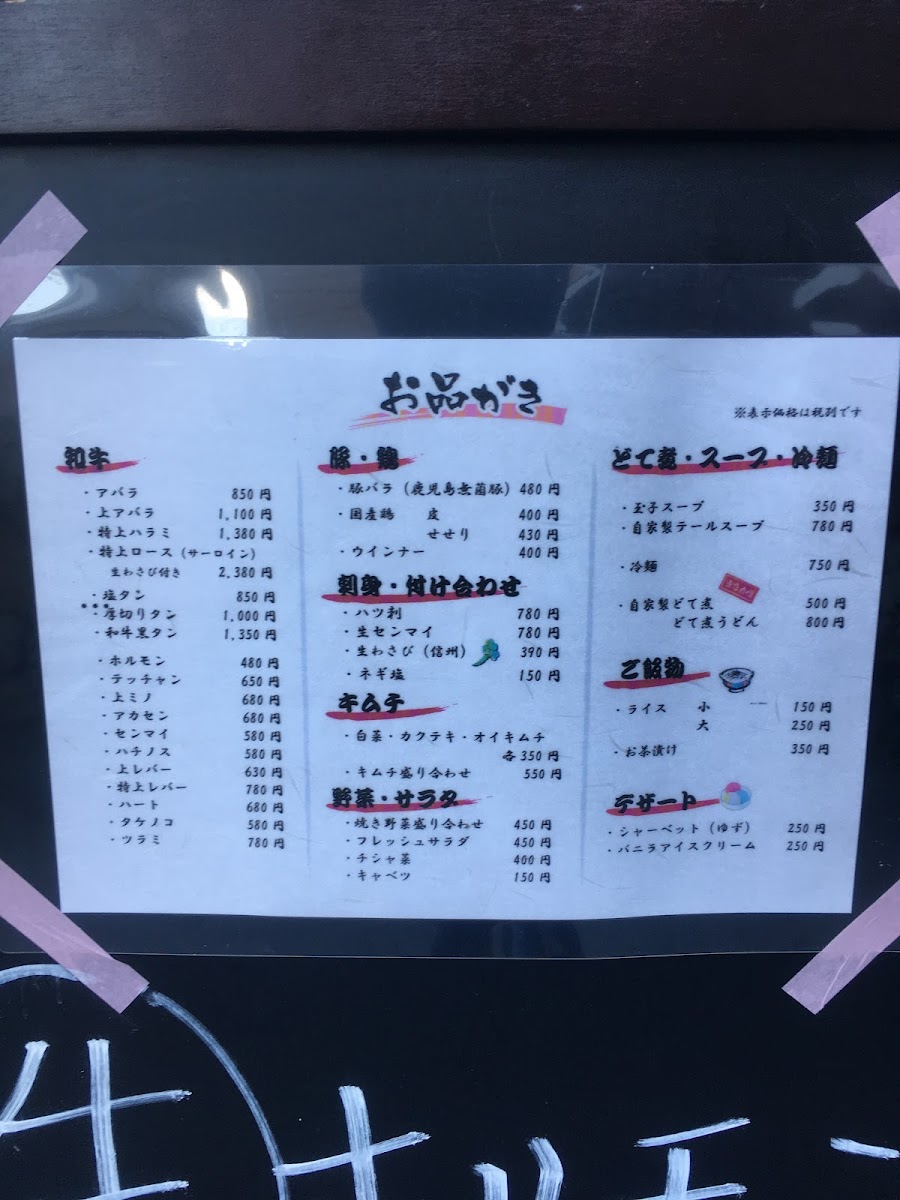 お品がき
※表示価格は税別です
和牛
・アバラ 850円
・上アバラ 1,100円
・特上ハラミ 1,380円
・特上ロース（サーロイン）
生わさび付き 2,380円
・塩タン 850円
・厚切りタン 1,000円
・和牛黒タン 1,350円
・ホルモン 480円
・テッチャン 650円
・上ミノ 680円
・アカセン 680円
・センマイ 580円
・ハチノス 580円
・上レバー 630円
・特上レバー 780円
・ハート 680円
・タケノコ 580円
・ツラミ 780円
豚・鶏
・豚バラ（鹿児島無菌豚）480円
・国産鶏 皮 400円
せせり 430円
・ウインナー 400円
刺身・付け合わせ
・ハツ刺 780円
・生センマイ 780円
・生わさび（信州） 390円
・ネギ塩 150円
キムチ
・白菜・カクテキ・オイキムチ
各350円
・キムチ盛り合わせ 550円
野菜・サラダ
・焼き野菜盛り合わせ 450円
・フレッシュサラダ 450円
・チシャ菜 400円
・キャベツ 150円
どて煮・スープ・冷麺
・玉子スープ 350円
・自家製テールスープ 780円
・冷麺 750円
・自家製どて煮 500円
どて煮うどん 800円
ご飯物
・ライス 小 150円
大 250円
・お茶漬け 350円
デザート
・シャーベット（ゆず） 250円
・バニラアイスクリーム 250円